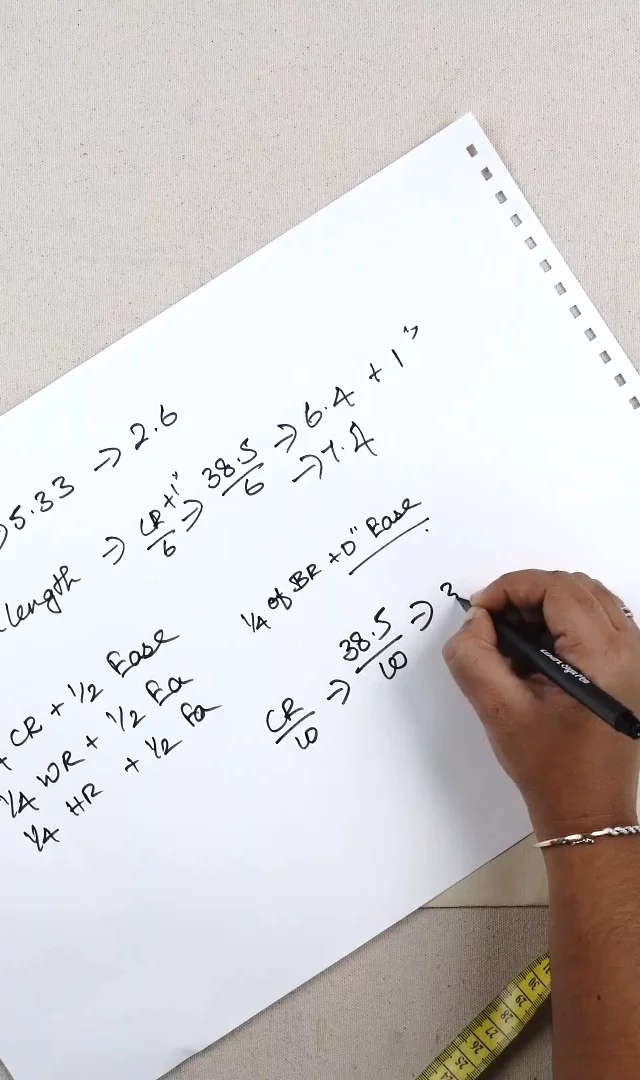 5.33 => 2.6
Length => CR/6 + 1" => 38.5/6 => 6.4 + 1"
=> 7.4
1/4 of BR + 0" Ease
+ CR + 1/2 Ease
1/4 WR + 1/2 Ea
1/4 HR + 1/2 Ea
CR/10 => 38.5/10 => 3